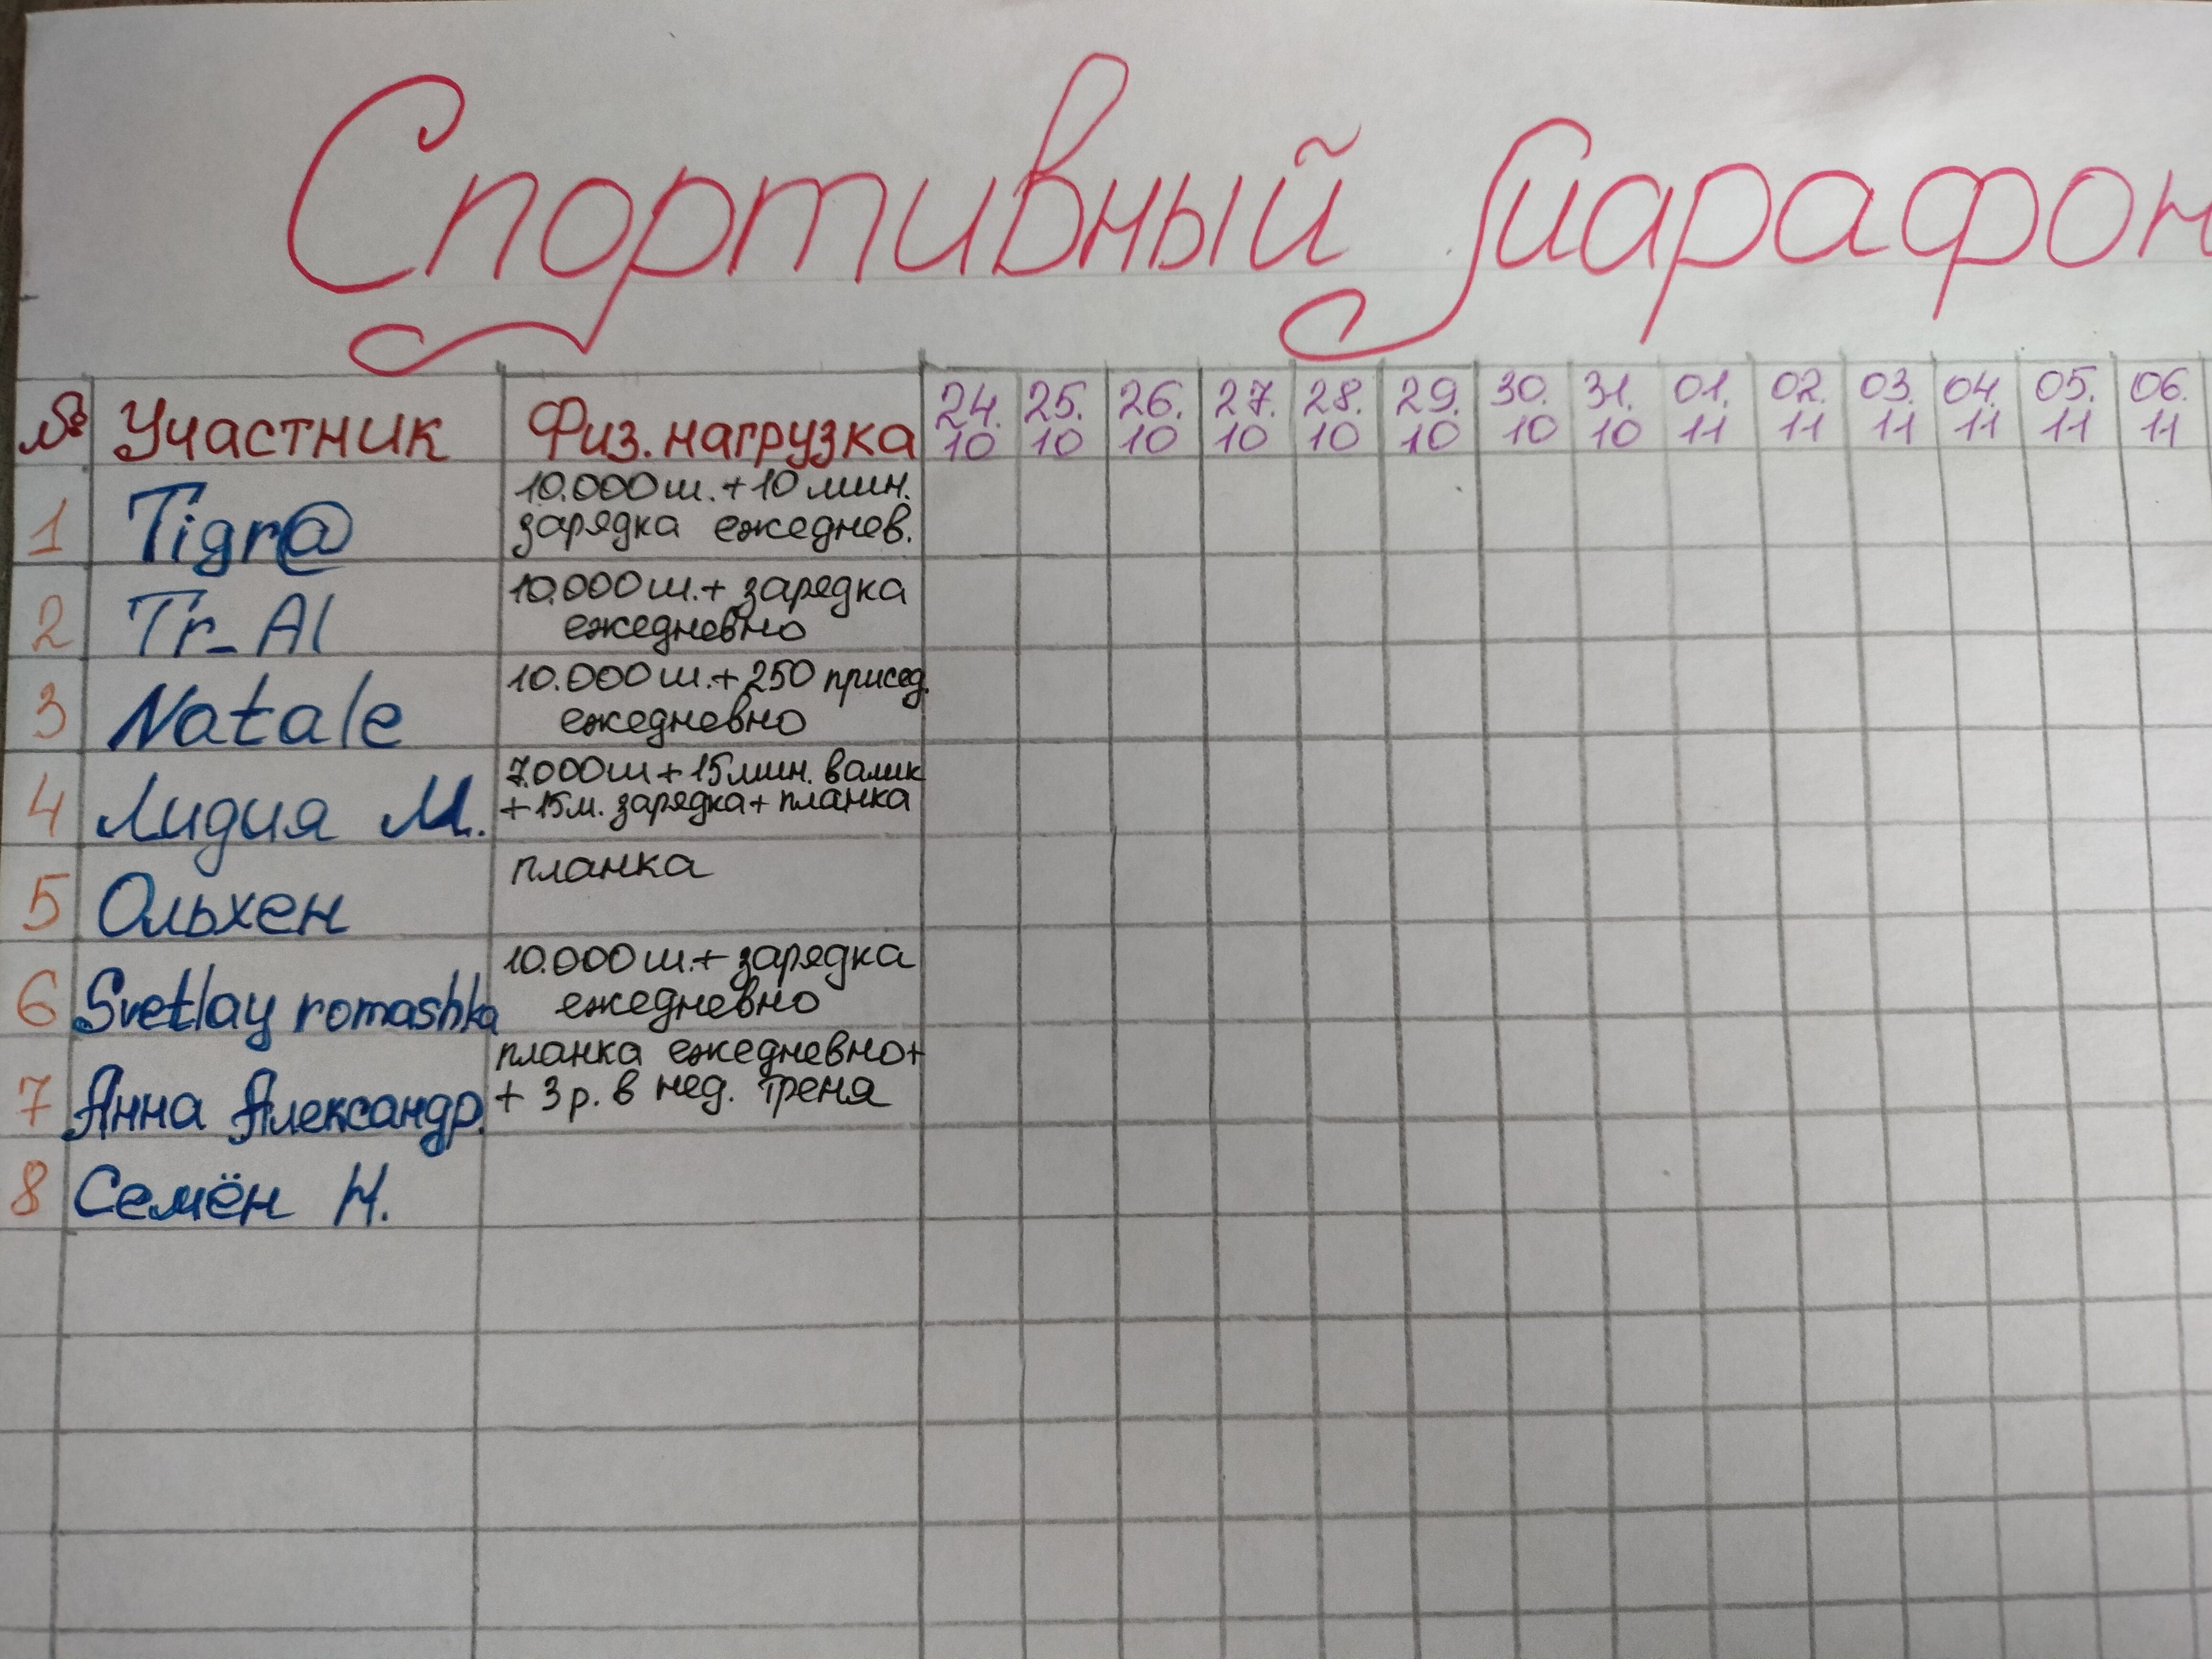 Спортивный Марафон
№ Участник Физ. нагрузка 24. 25. 26. 27. 28. 29. 30. 31. 01. 02. 03. 04. 05. 06.
10 10 10 10 10 10 10 10 11 11 11 11 11 11
1 Tigr@ 10.000 ш. + 10 мин.
зарядка ежеднев.
2 Tr_Al 10.000 ш. + зарядка
ежедневно
3 Natale 10.000 ш. + 250 присед.
ежедневно
4 Лидия М. 7.000 ш + 15 мин. валик
+ 15 м. зарядка + планка
5 Ольхен планка
6 Svetlay romashka 10.000 ш. + зарядка
ежедневно
7 Анна Александр. планка ежедневно +
+ 3 р. в нед. треня
8 Семён Н.